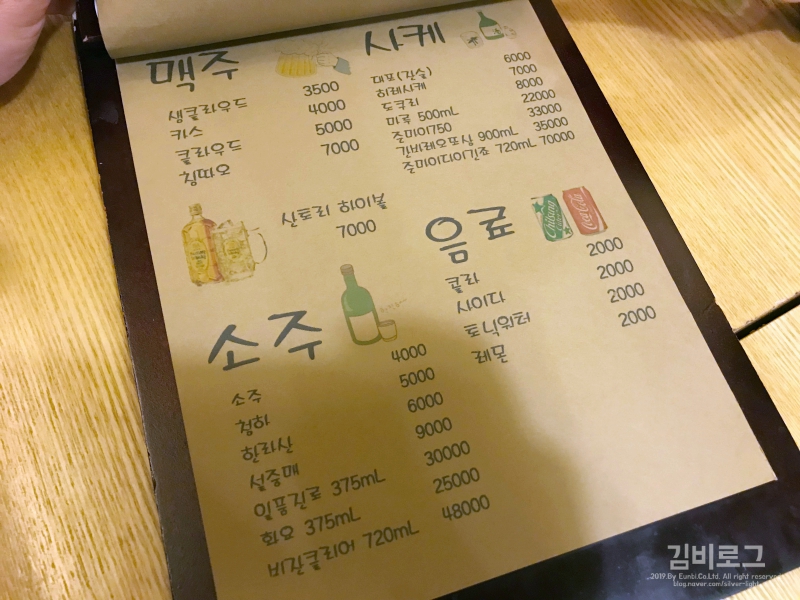 맥주
생클라우드 3500
카스 4000
클라우드 5000
칭따오 7000
사케
대포(간술) 6000
히레사케 7000
도쿠리 8000
미루 500mL 22000
준마이750 33000
간바레오또상 900mL 35000
준마이다이긴죠 720mL 70000
산토리 하이볼
7000
음료
콜라 2000
사이다 2000
토닉워터 2000
레몬 2000
소주
소주 4000
청하 5000
한라산 6000
설중매 9000
일품진로 375mL 30000
화요 375mL 25000
비잔클리어 720mL 48000
Chilsung
Coca-Cola
김비로그
2019.By Eunbi.Co.Ltd. All right reserved
blog.naver.com/silver-light